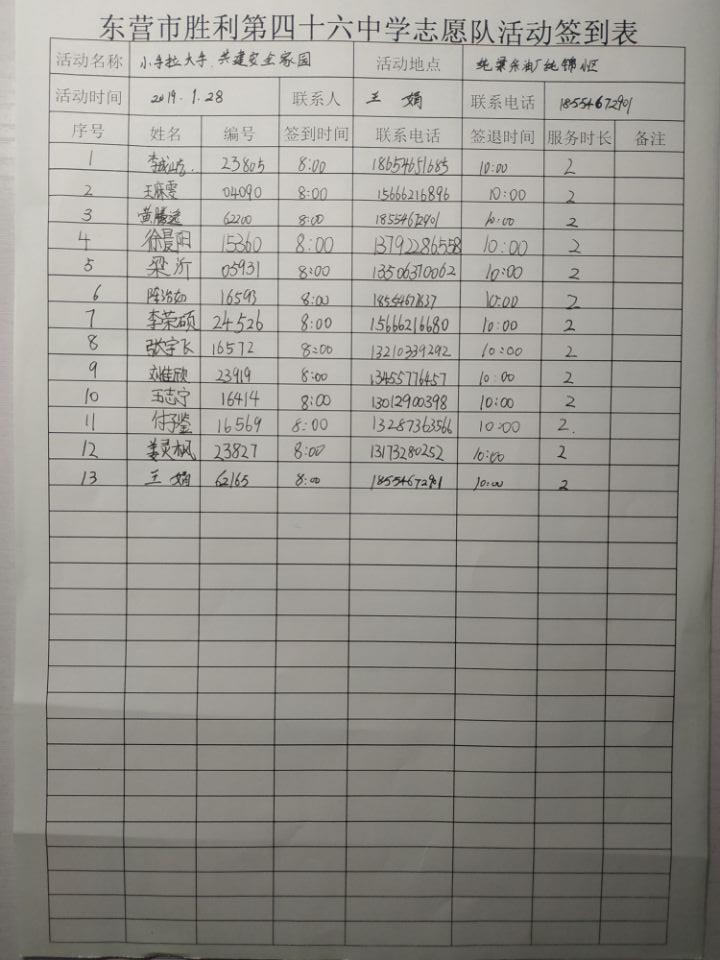 东营市胜利第四十六中学志愿队活动签到表
活动名称 小手拉大手,共建安全家园 活动地点 纯梁采油厂纯锦小区
活动时间 2019.1.28 联系人 王娟 联系电话 18554672901
序号 姓名 编号 签到时间 联系电话 签退时间 服务时长 备注
1 23805 8:00 18654651685 10:00 2
2 王麻雯 04090 8:00 15666216896 10:00 2
3 黄腾逸 62200 8:00 18554672901 10:00 2
4 徐晨阳 15360 8:00 13792286558 10:00 2
5 梁沂 05931 8:00 13506370062 10:00 2
6 16593 8:00 10:00 2
7 李荣硕 24526 8:00 15666216680 10:00 2
8 张宇飞 16572 8:00 13210339292 10:00 2
9 刘佳欣 23919 8:00 13455776457 10:00 2
10 王志宁 16414 8:00 13012900398 10:00 2
11 付子鉴 16569 8:00 13287363566 10:00 2.
12 姜灵枫 23827 8:00 13173280252 10:00 2
13 王娟 62165 8:00 18554672901 10:00 2